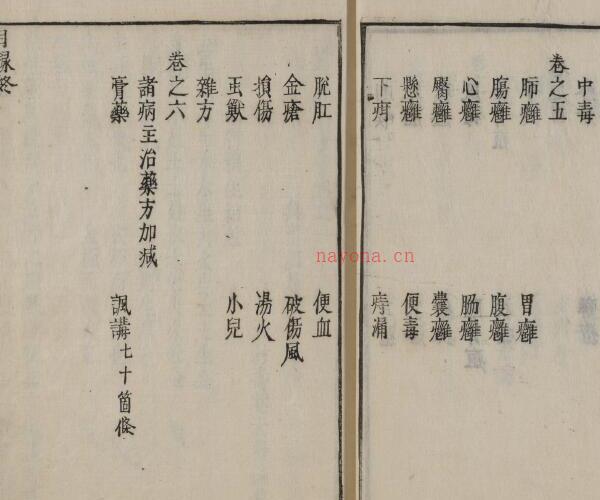 中毒
卷之五
肺癰 胃癰
腸癰 腹癰
心癰 癰
臀癰 囊癰
懸癰 便毒
下疳 痔漏
脫肛 便血
金瘡 破傷風
損傷 湯火
䖝獸 小兒
雜方
卷之六
諸病主治藥方加减
膏藥 諷講七十箇條
目録終
nayona.cn